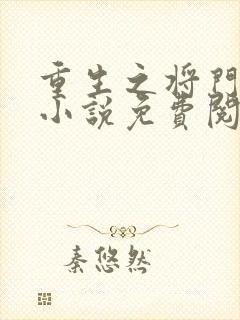 重生之将門
小説免費閱
秦悠然